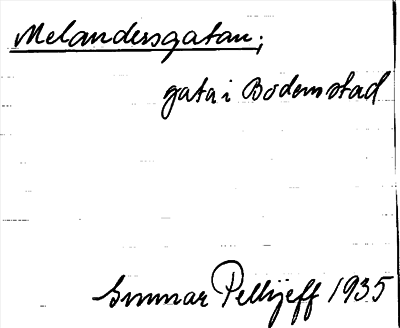 Melandersgatan;
gata i Bodens stad
Gunnar Pellijeff 1935